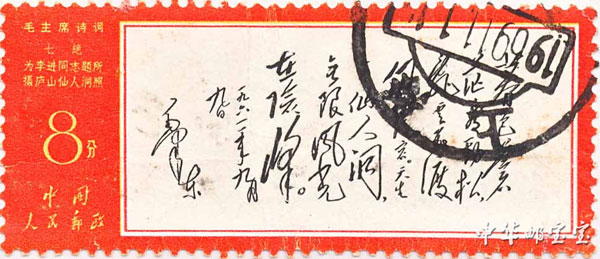 毛主席诗词
七绝
为李进同志题所
摄庐山仙人洞照
8分
中国
人民邮政
暮色苍
茫看劲松,
乱云飞渡
仙人洞,
无限风光
在险峰。
一九六一年九月
九日
毛泽东
中华邮宝宝